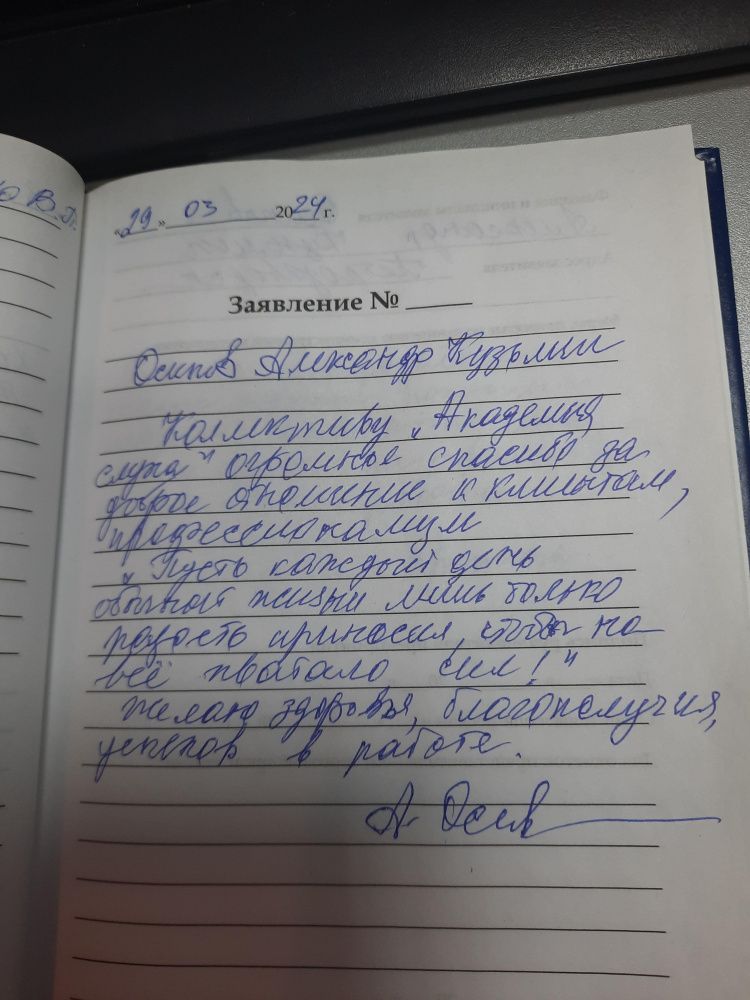 Ю В.П.
«29» 03 2024 г.
Заявление №
Осипов Александр Кузьмич
Коллективу „Академия
слуха" огромное спасибо за
доброе отношение к клиентам,
профессионализм
„Пусть каждый день
обычной жизни лишь только
радость приносил, чтобы на
всё хватало сил!"
Желаю здоровья, благополучия,
успехов в работе.
А. Осип